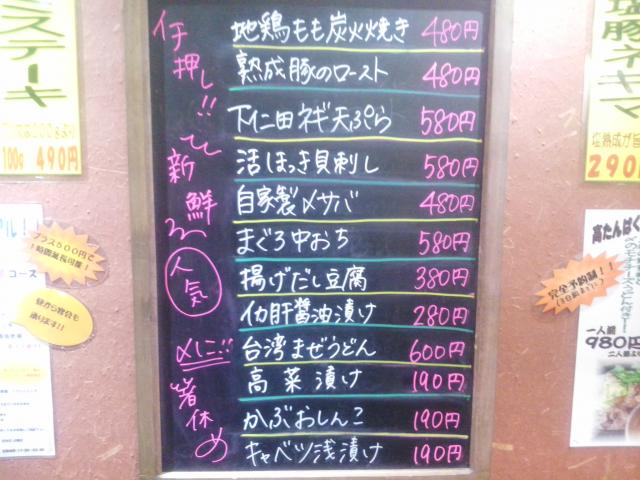 地鶏もも炭火焼き 480円
熟成豚のロースト 480円
下仁田ネギ天ぷら 580円
活ほっき貝刺し 580円
自家製〆サバ 480円
まぐろ中おち 580円
揚げだし豆腐 380円
イカ肝醤油漬け 280円
台湾まぜうどん 600円
高菜漬け 190円
かぶおしんこ 190円
キャベツ浅漬け 190円
押し!!
新鮮
人気
〆に!!
箸休め
ステーキ
100g 490円
プラス500円で
1時間延長可能!
昼から宴会も
承ります!!
コース
塩豚ネギマ
塩熟成が旨
290
高たんぱく
完全予約制!!
一人前
980円